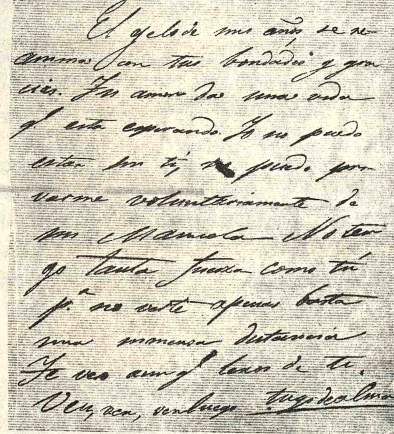 El yelo de mis años se re-
anima con tus bondades y gra-
cias. Tu amor da una vida
q.e está espirando. Yo no puedo
estar sin tí, no puedo pri-
varme voluntariamente de
mi Manuela No ten-
go tanta fuerza como tú
p.a no verte apenas basta
una inmensa distancia
Te veo aunq.e lexos de ti.
Ven, ven, ven luego tuyo de alma